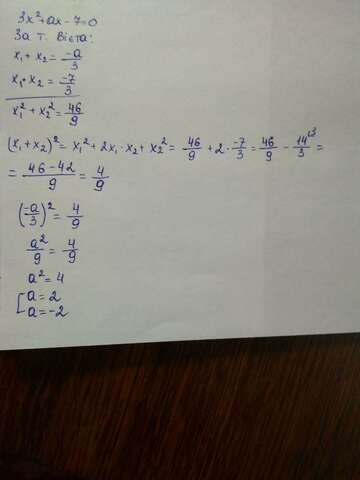 3x²+ax-7=0
За т. Вієта:
x₁+x₂=-a/3
x₁·x₂=-7/3
x₁²+x₂²=46/9
(x₁+x₂)²=x₁²+2x₁·x₂+x₂²=46/9+2·-7/3=46/9-14/3^(3=
=46-42/9=4/9
(-a/3)²=4/9
a²/9=4/9
a²=4
[a=2
a=-2